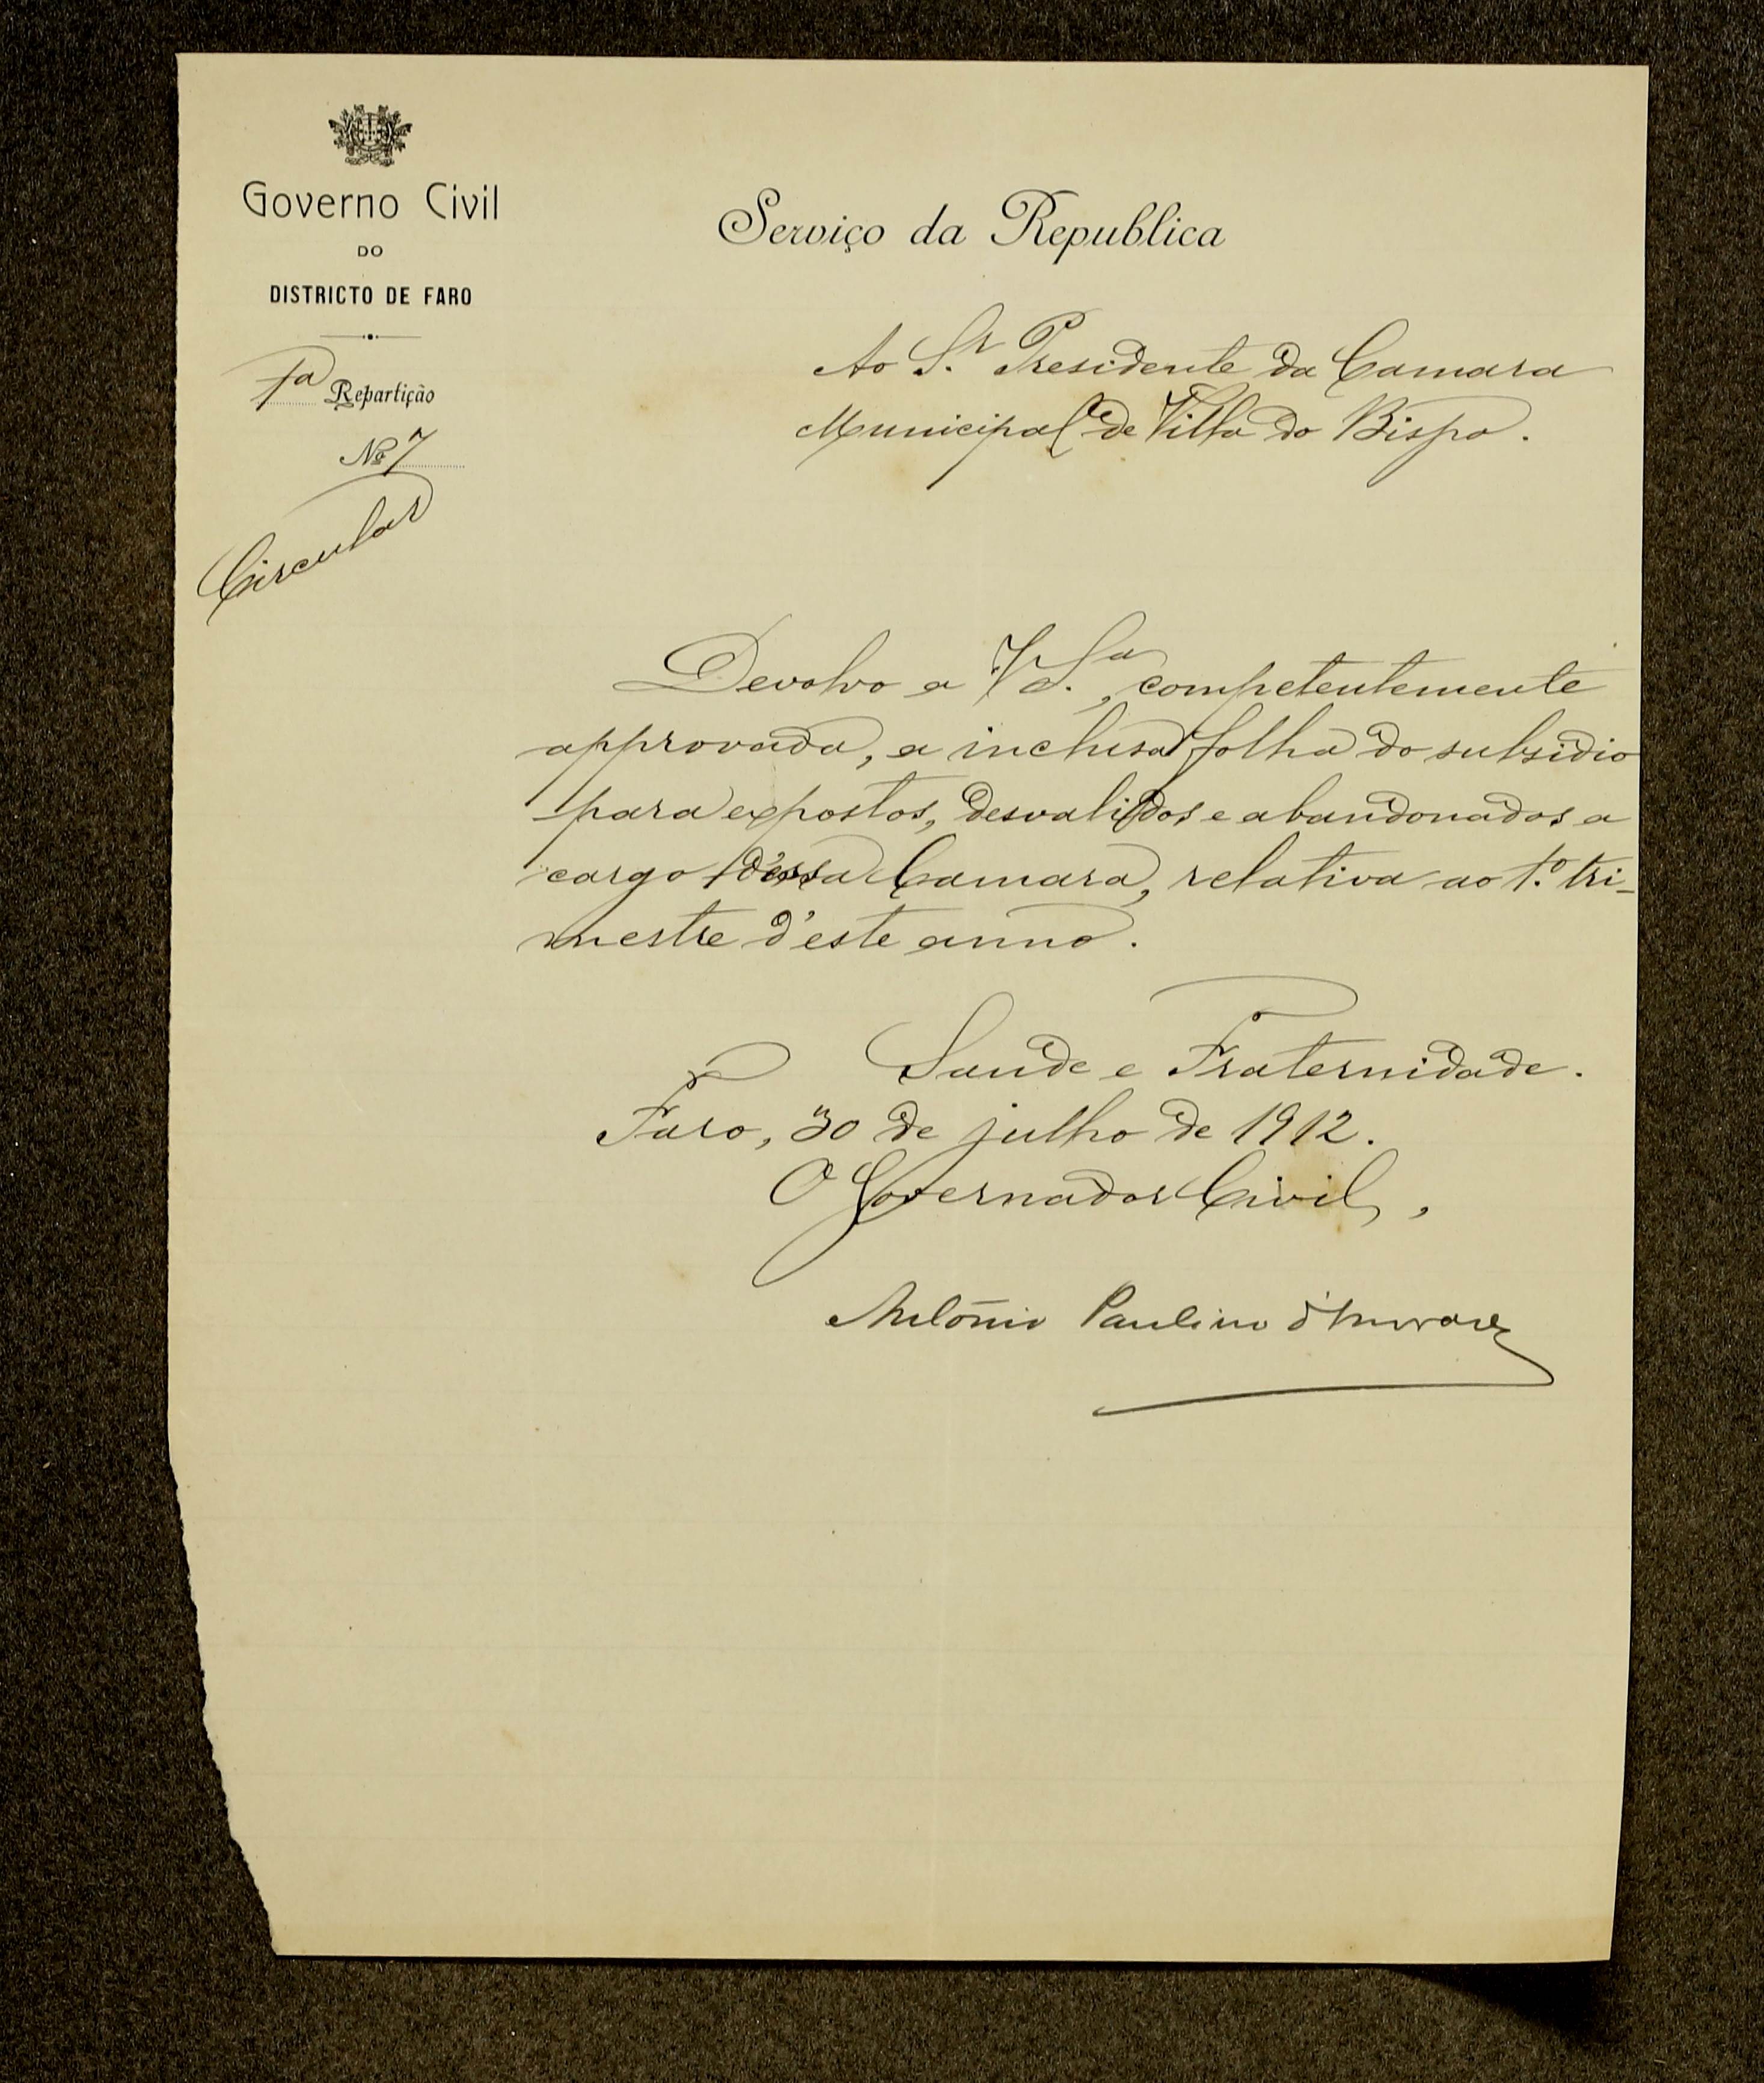 Governo Civil
DO
DISTRICTO DE FARO
1ª Repartição
Nº 7
Circular
Serviço da Republica
Ao Sr. Presidente da Camara
Municipal de Villa do Bispo.
Devolvo a V Sª, competentemente
approvada, a inclusa folha do subsidio
para expostos, desvalidos e abandonados a
cargo d'essa Camara, relativa ao 1.º tri-
mestre d'este anno.
Saude e Fraternidade.
Faro, 30 de julho de 1912.
O Governador Civil,
António Paulino